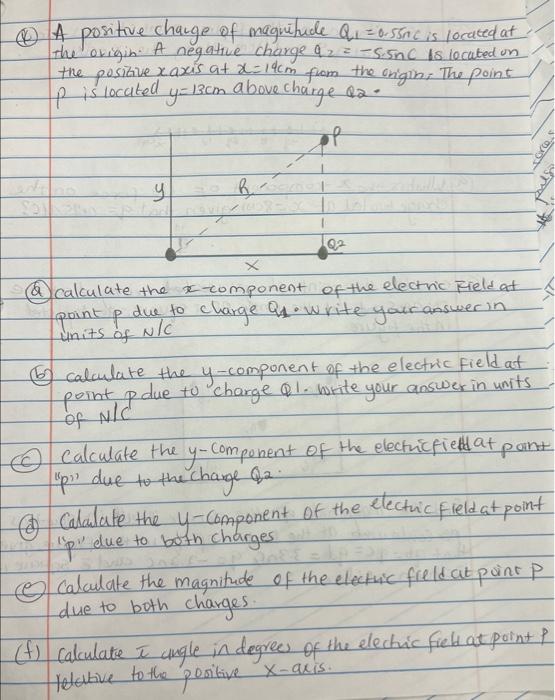 A positive charge of magnitude Q1 = 0.55nC is located at
the origin. A negative charge q2 = -5.5nC is located on
the positive x axis at x=14cm from the origin. The point
P is located y=13cm above charge Q2.
P
y
R
Q2
x
(a) calculate the x-component of the electric Field at
point p due to charge Q1. write your answer in
units of N/C
(b) calculate the y-component of the electric field at
point p due to charge Q1. write your answer in units
of N/C
(c) Calculate the y-component of the electric field at point
"p" due to the charge Q2.
(d) Calculate the y-component of the electric field at point
"p" due to both charges
(e) Calculate the magnitude of the electric field at point P
due to both charges.
(f) Calculate I angle in degrees of the electric field at point P
relative to the positive x-axis.